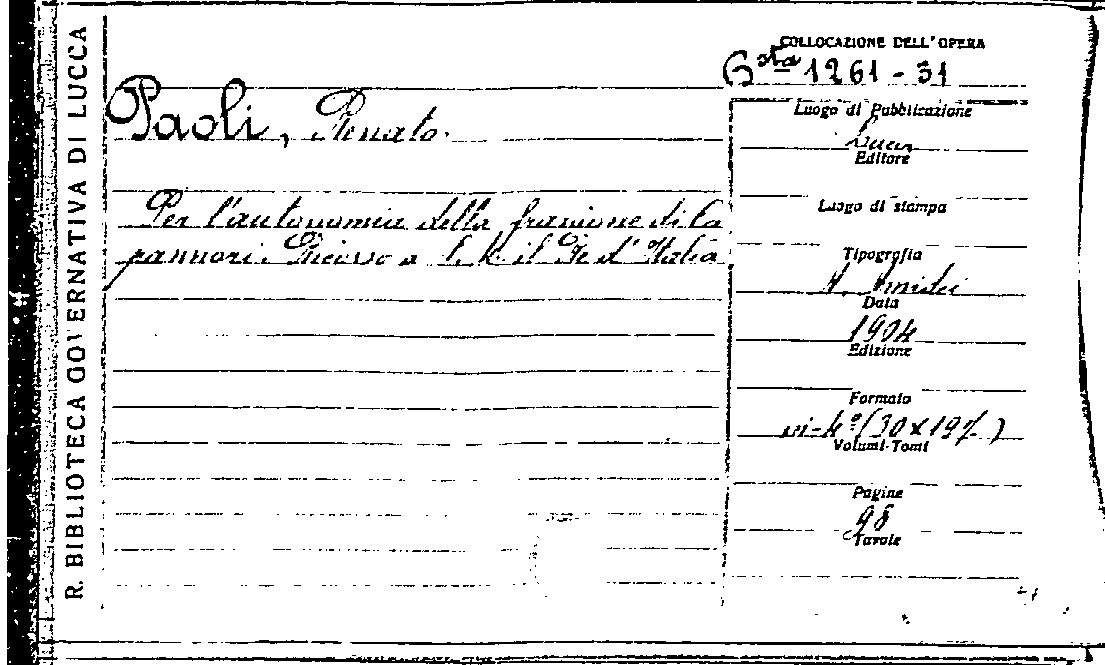 R. BIBLIOTECA GOVERNATIVA DI LUCCA
COLLOCAZIONE DELL'OPERA
Bsta 1261-31
Paoli, Renato.
Per l'autonomia della frazione di Ca
pannori. Ricorso a S. M. il Re d'Italia
Luogo di Pubblicazione
Lucca
Editore
Luogo di stampa
Tipografia
A. Amedei
Data
1904
Edizione
Formato
in-4º (30x19½)
Volumi-Tomi
Pagine
98
Tavole